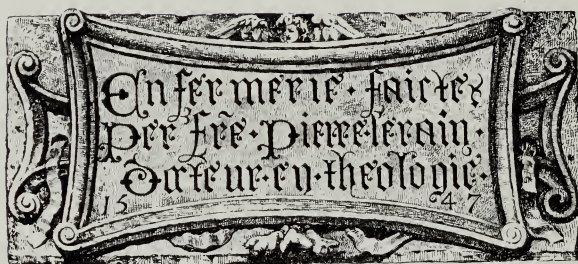 Enfermerie · faictez
Per frẽ · pierre · lerain ·
Docteur · en · theologie ·
15 47